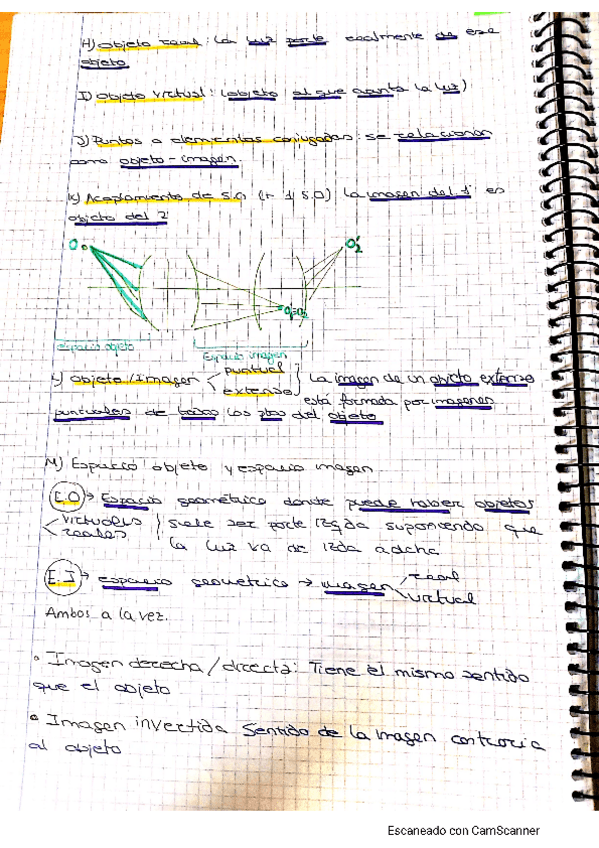 H) Objeto real: La luz parte realmente de ese
objeto
I) Objeto virtual: (objeto al que apunta la luz)
J) Puntos o elementos conjugados: se relacionan
como objeto-imagen.
K) Acoplamiento de s.o (+ 1 S.O) La imagen del 1' es
objeto del 2'
O O'2
O'1=O2
Espacio objeto Espacio imagen
L) objeto/Imagen puntual extenso La imagen de un objeto extenso
está formada por imagenes
puntuales de todos los ptos del objeto
M) Espacio objeto y espacio imagen
E.O → Espacio geométrico donde puede haber objetos
virtuales reales suele ser parte izqda suponiendo que
la luz va de izda a dcha
E.I → espacio geometrico → imagen real virtual
Ambos a la vez.
• Imagen derecha/directa: Tiene el mismo sentido
que el objeto
• Imagen invertida Sentido de la imagen contraria
al objeto
Escaneado con CamScanner